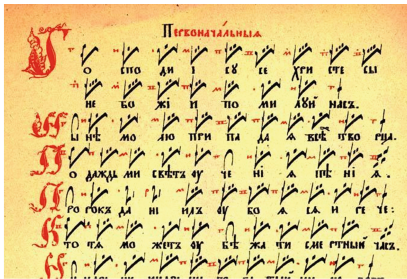 Первоначальныѧ
Г о спо ди і су се хри сте бы
не бо жі и по ми луй насъ.
ы нѣ мо лю при па да ѧ всѣ тво рца.
П о даждь ми свѣтъ оу че ні ѧ пѣ ні ѧ.
П ро рокъ да ні илъ оу бо ѧ сѧ и ге че:
К то тѧ мо жетъ оу бѣ жа ти сме ртный часъ.